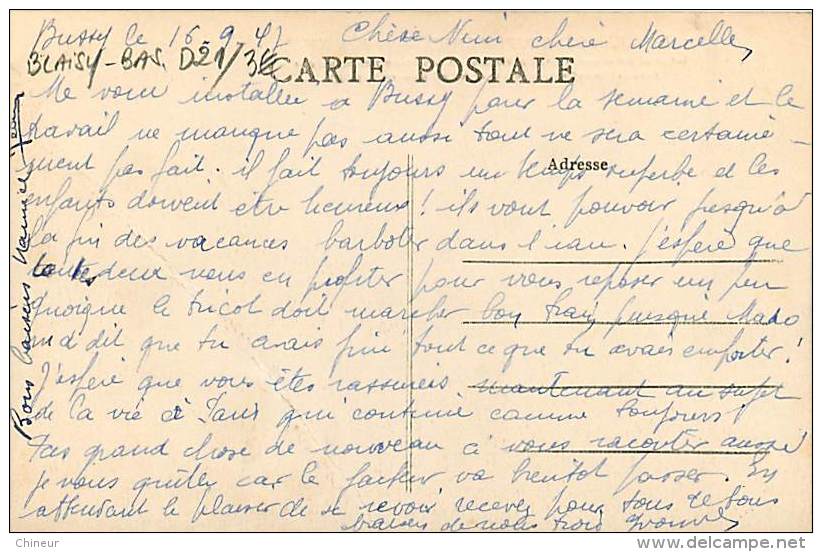 Bussy le 16-9-47 Chère Nini chère Marcelle,
BLAISY-BAS. D21/3
CARTE POSTALE
Me voici installée à Bussy pour la semaine et le
travail ne manque pas aussi tout ne sera certaine-
ment pas fait. il fait toujours un temps superbe et les
Adresse
enfants doivent être heureux! ils vont pouvoir jusqu'à
la fin des vacances barboter dans l'eau. J'espère que
toutes deux vous en profiter pour vous reposer un peu
quoique le tricot doit marcher bon train puisque Mado
m'a dit que tu avais fini tout ce que tu avais emporter!
J'espère que vous êtes rassurées maintenant au sujet
de la vie à Paris qui continue comme toujours!
Pas grand chose de nouveau à vous raconter aussi
je vous quitte car le facteur va bientôt passer. En
attendant le plaisir de se revoir recevez pour tous de bons
baisers de nous trois Yvonne
Bons baisers
Delcampe.net
Chineur